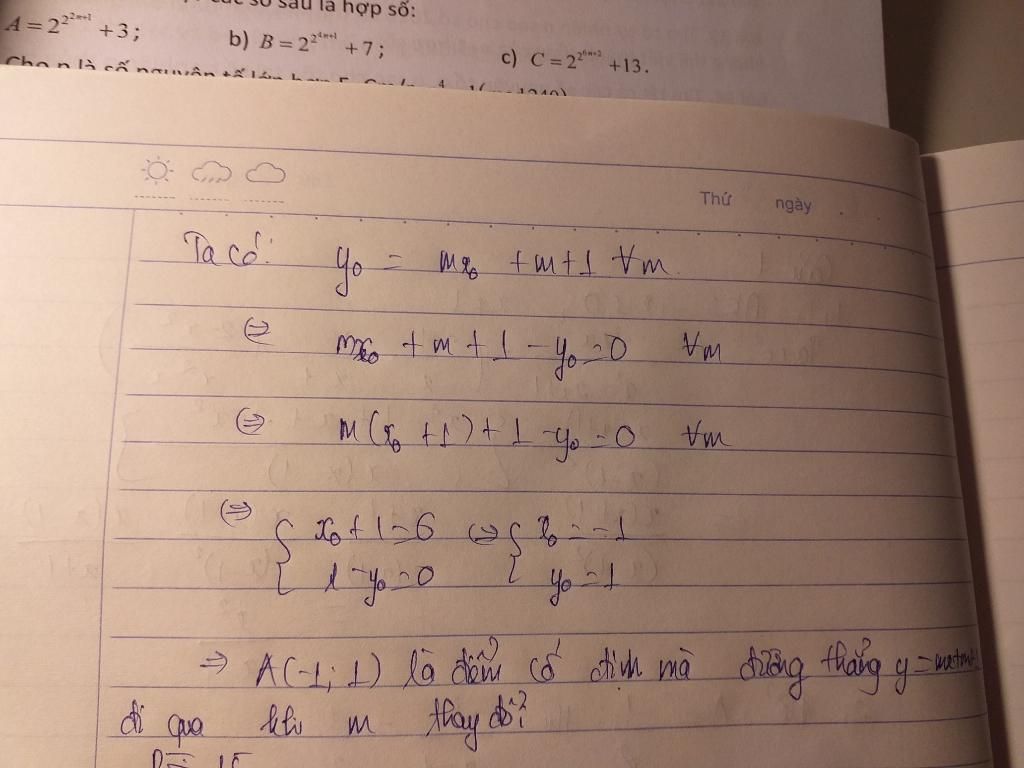 các số sau là hợp số:
A = 2^{2^{2n+1}} + 3; b) B = 2^{2^{4n+1}} + 7; c) C = 2^{2^{6n+2}} + 13.
Cho p là số nguyên tố lớn hơn 5.
Thứ ngày
Ta có: y₀ = mx₀ + m + 1 ∀m
⇔ mx₀ + m + 1 - y₀ = 0 ∀m
⇔ m(x₀ + 1) + 1 - y₀ = 0 ∀m
⇔ { x₀ + 1 = 0 ⇔ { x₀ = -1
1 - y₀ = 0 y₀ = 1
⇒ A(-1; 1) là điểm cố định mà đường thẳng y = mx+m+1
đi qua khi m thay đổi